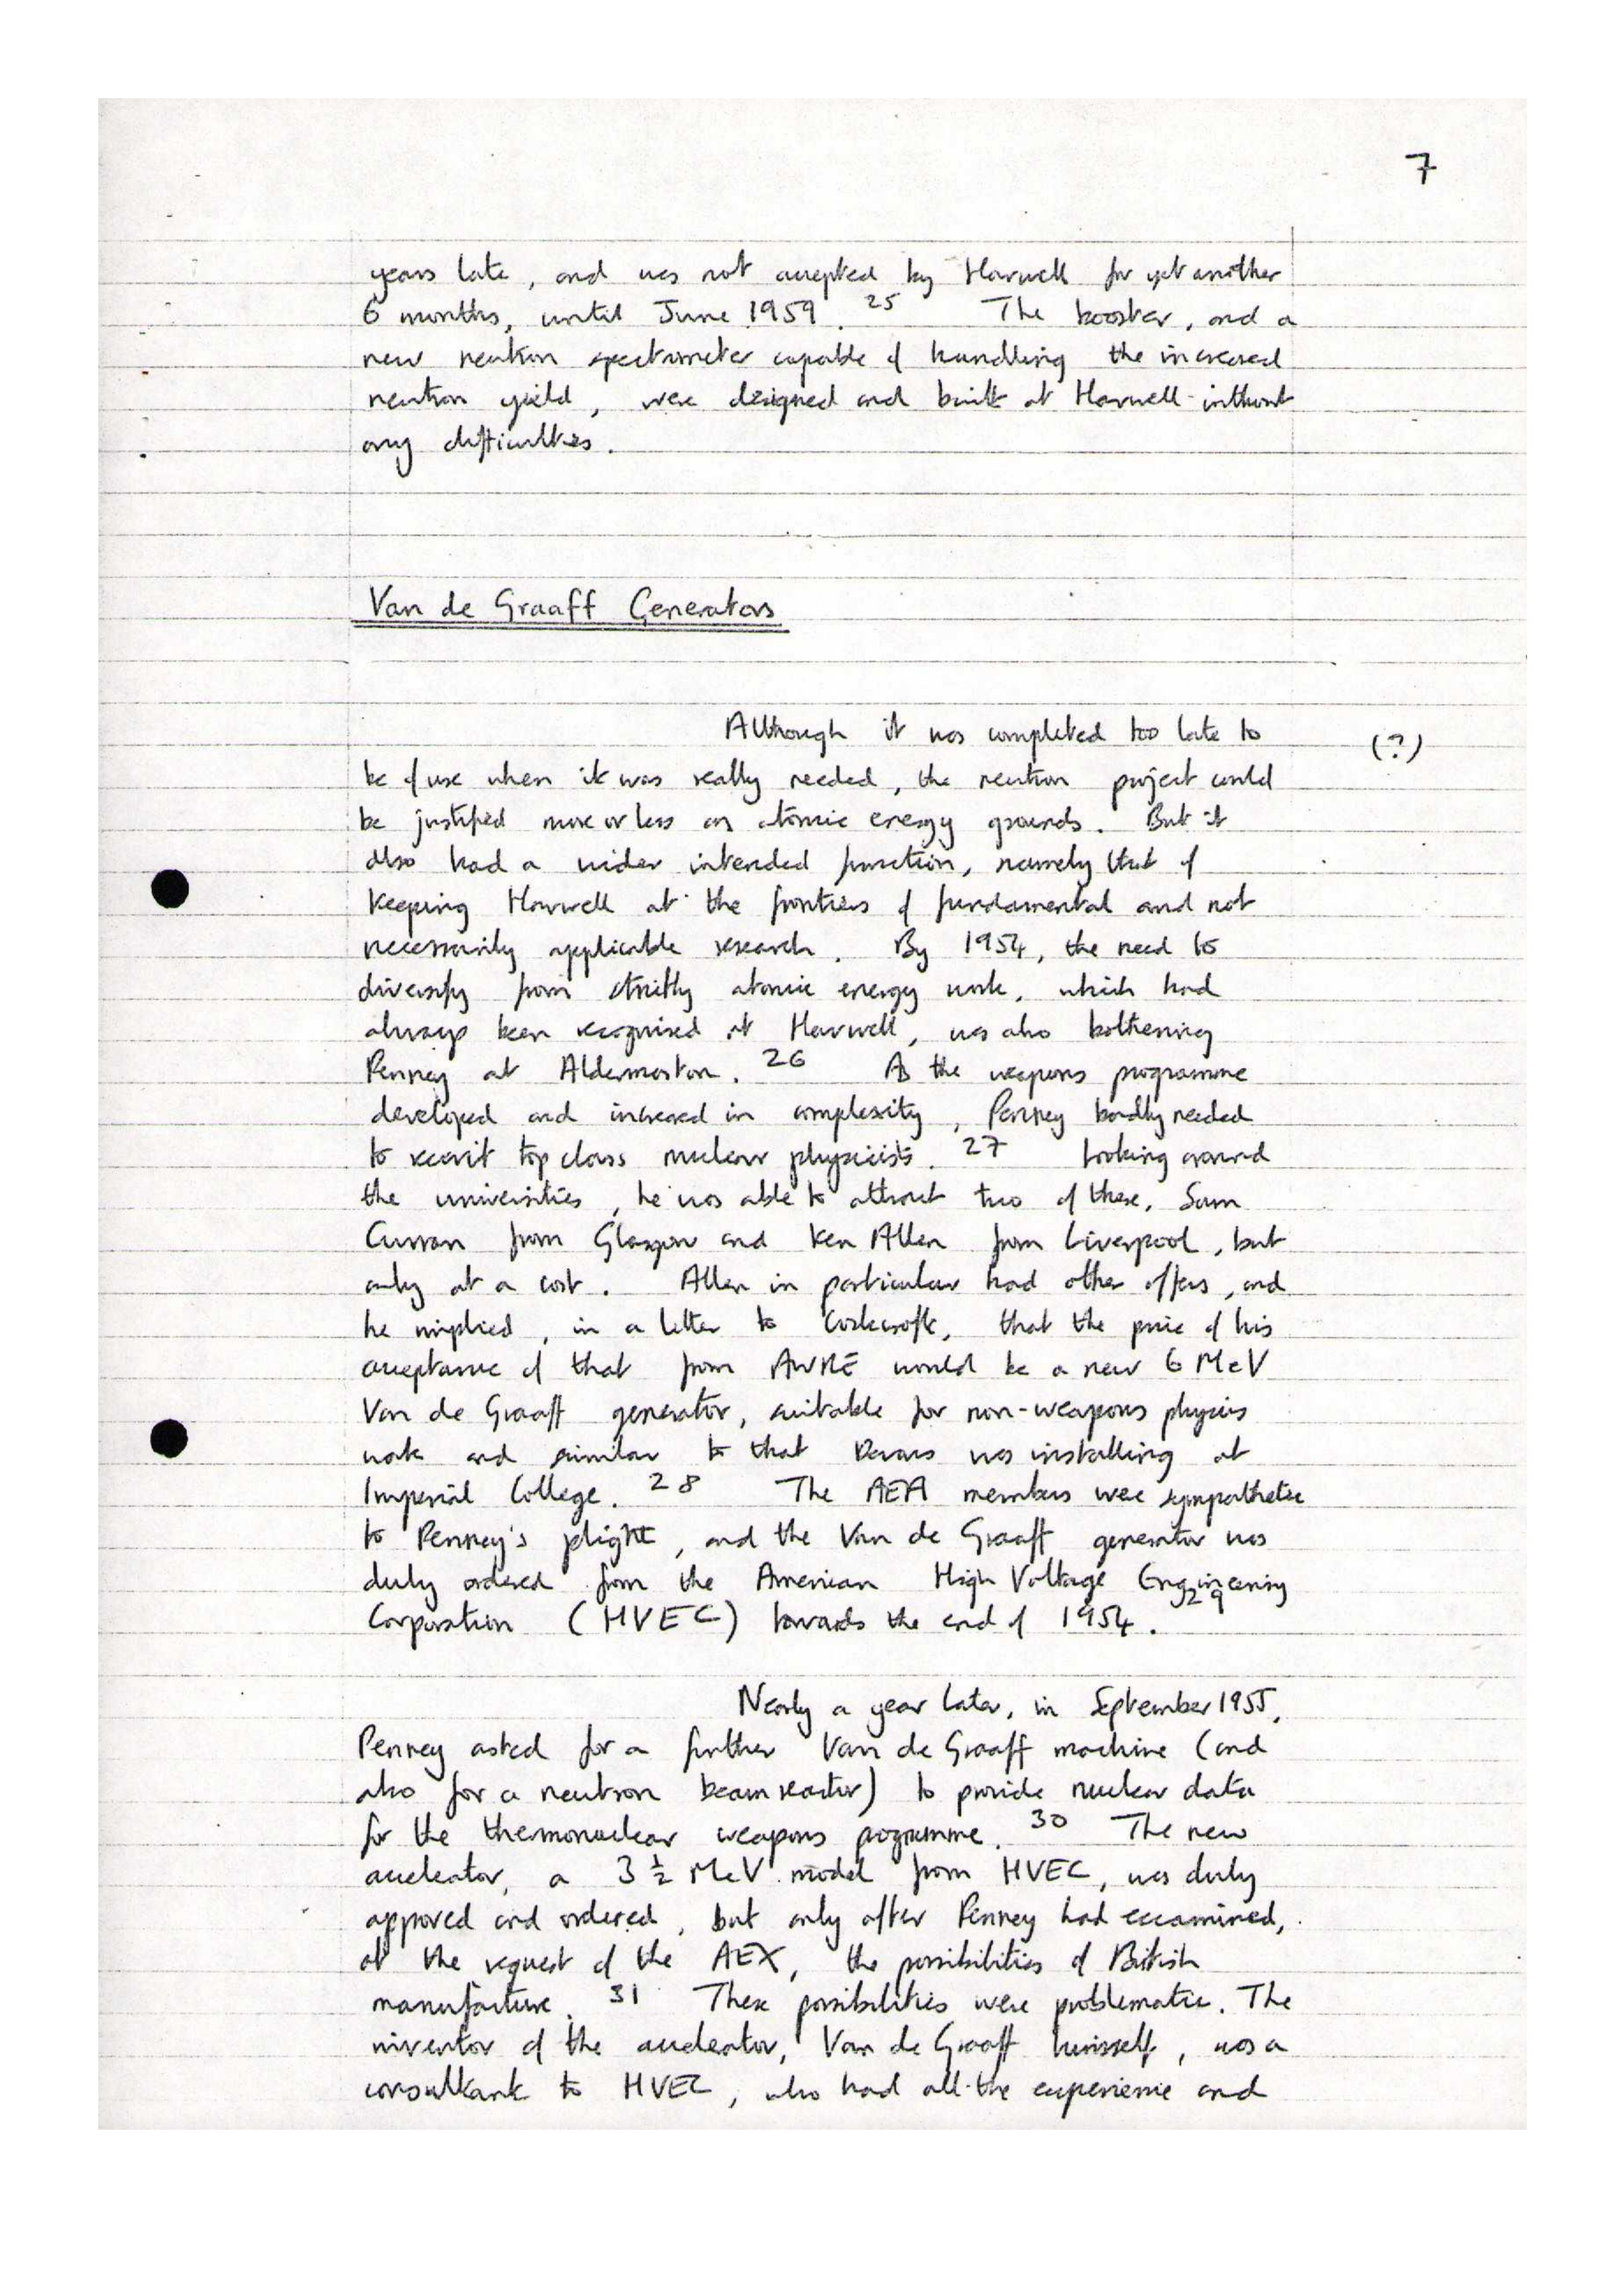 7
years late, and was not accepted by Harwell for yet another
6 months, until June 1959. 25 The booster, and a
new neutron spectrometer capable of handling the increased
neutron yield, were designed and built at Harwell without
any difficulties.
Van de Graaff Generators
Although it was completed too late to
(?)
be of use when it was really needed, the neutron project could
be justified more or less on atomic energy grounds. But it
also had a wider intended function, namely that of
keeping Harwell at the frontiers of fundamental and not
necessarily applicable research. By 1954, the need to
diversify from strictly atomic energy work, which had
always been recognised at Harwell, was also bothering
Penney at Aldermaston. 26 As the weapons programme
developed and increased in complexity, Penney badly needed
to recruit top class nuclear physicists. 27 Looking around
the universities, he was able to attract two of these, Sam
Curran from Glasgow and Ken Allen from Liverpool, but
only at a cost. Allen in particular had other offers, and
he implied, in a letter to Cockcroft, that the price of his
acceptance of that from AWRE would be a new 6 MeV
Van de Graaff generator, suitable for non-weapons physics
work and similar to that Devons was installing at
Imperial College. 28 The AEA members were sympathetic
to Penney's plight, and the Van de Graaff generator was
duly ordered from the American High Voltage Engineering
Corporation (HVEC) towards the end of 1954. 29
Nearly a year later, in September 1955,
Penney asked for a further Van de Graaff machine (and
also for a neutron beam reactor) to provide nuclear data
for the thermonuclear weapons programme. 30 The new
accelerator, a 3 ½ MeV model from HVEC, was duly
approved and ordered, but only after Penney had examined,
at the request of the AEX, the possibilities of British
manufacture. 31 These possibilities were problematic. The
inventor of the accelerator, Van de Graaff himself, was a
consultant to HVEC, who had all the experience and